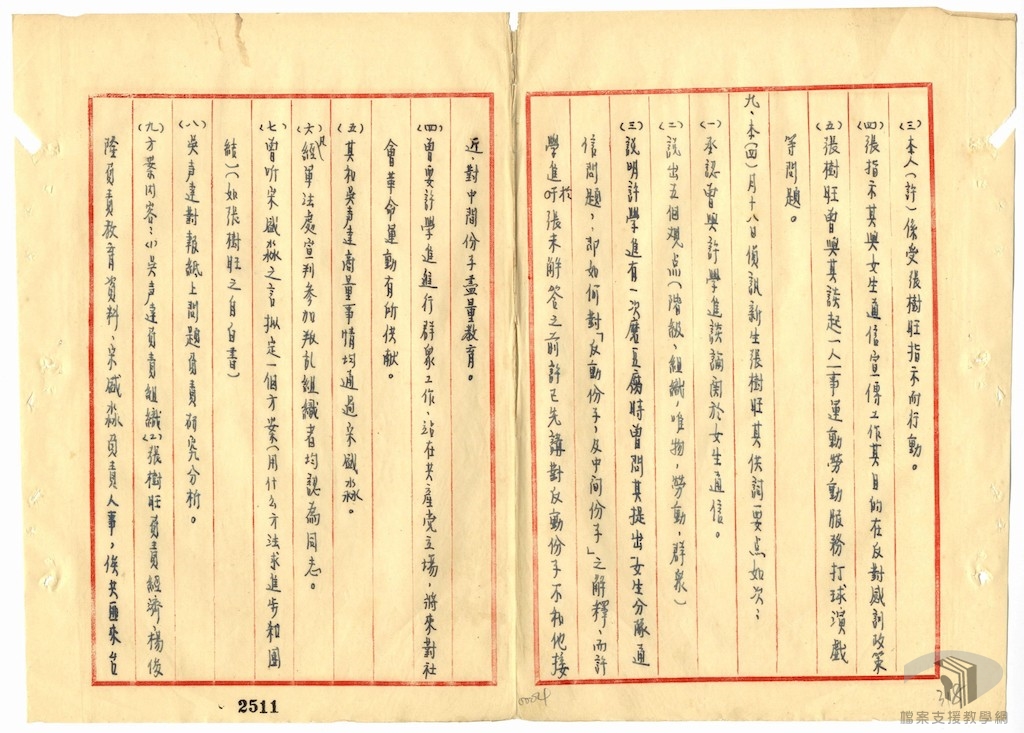 (三)本人(許)係受張樹旺指示而行動。
(四)張指示其與女生通信宣傳工作其目的在反對感訓政策
(五)張樹旺曾與其談起一人一事運動勞動服務打球演戲
等問題。
九、本(四)月十八日偵訊新生張樹旺其供詞要点如次：
(一)承認曾與許學進談論関於女生通信。
(二)説出五個观点(階級，組織，唯物，勞動，群衆)
(三)説明許學進有一次磨豆腐時曾問其提出「女生分隊通
信問題，即如何對「反動份子，及中间份子」之解釋，而許
學進於吁張未解答之前許已先講對反動份子不和他接
近，對中間份子盡量教育。
(四)曾要許學進進行群衆工作，站在共產党立場，將來對社
會革命運動有所供献。
(五)其和吳声達商量事情均通過宋盛淼。
(六)凡經軍法處宣判参加叛乱組織者均認為同志。
(七)曾听宋盛淼之言拟定一個方案(用什么方法求進步和團
結)(如張樹旺之自白書)
(八)吳声達對報紙上問題負責研究分析。
(九)方案内容：(1)吳声達負責組織(2)張樹旺負責經濟楊俊
隆負責教育資料、宋盛淼負責人事，俟共匪來台
2511
0004
檔案支援教學網